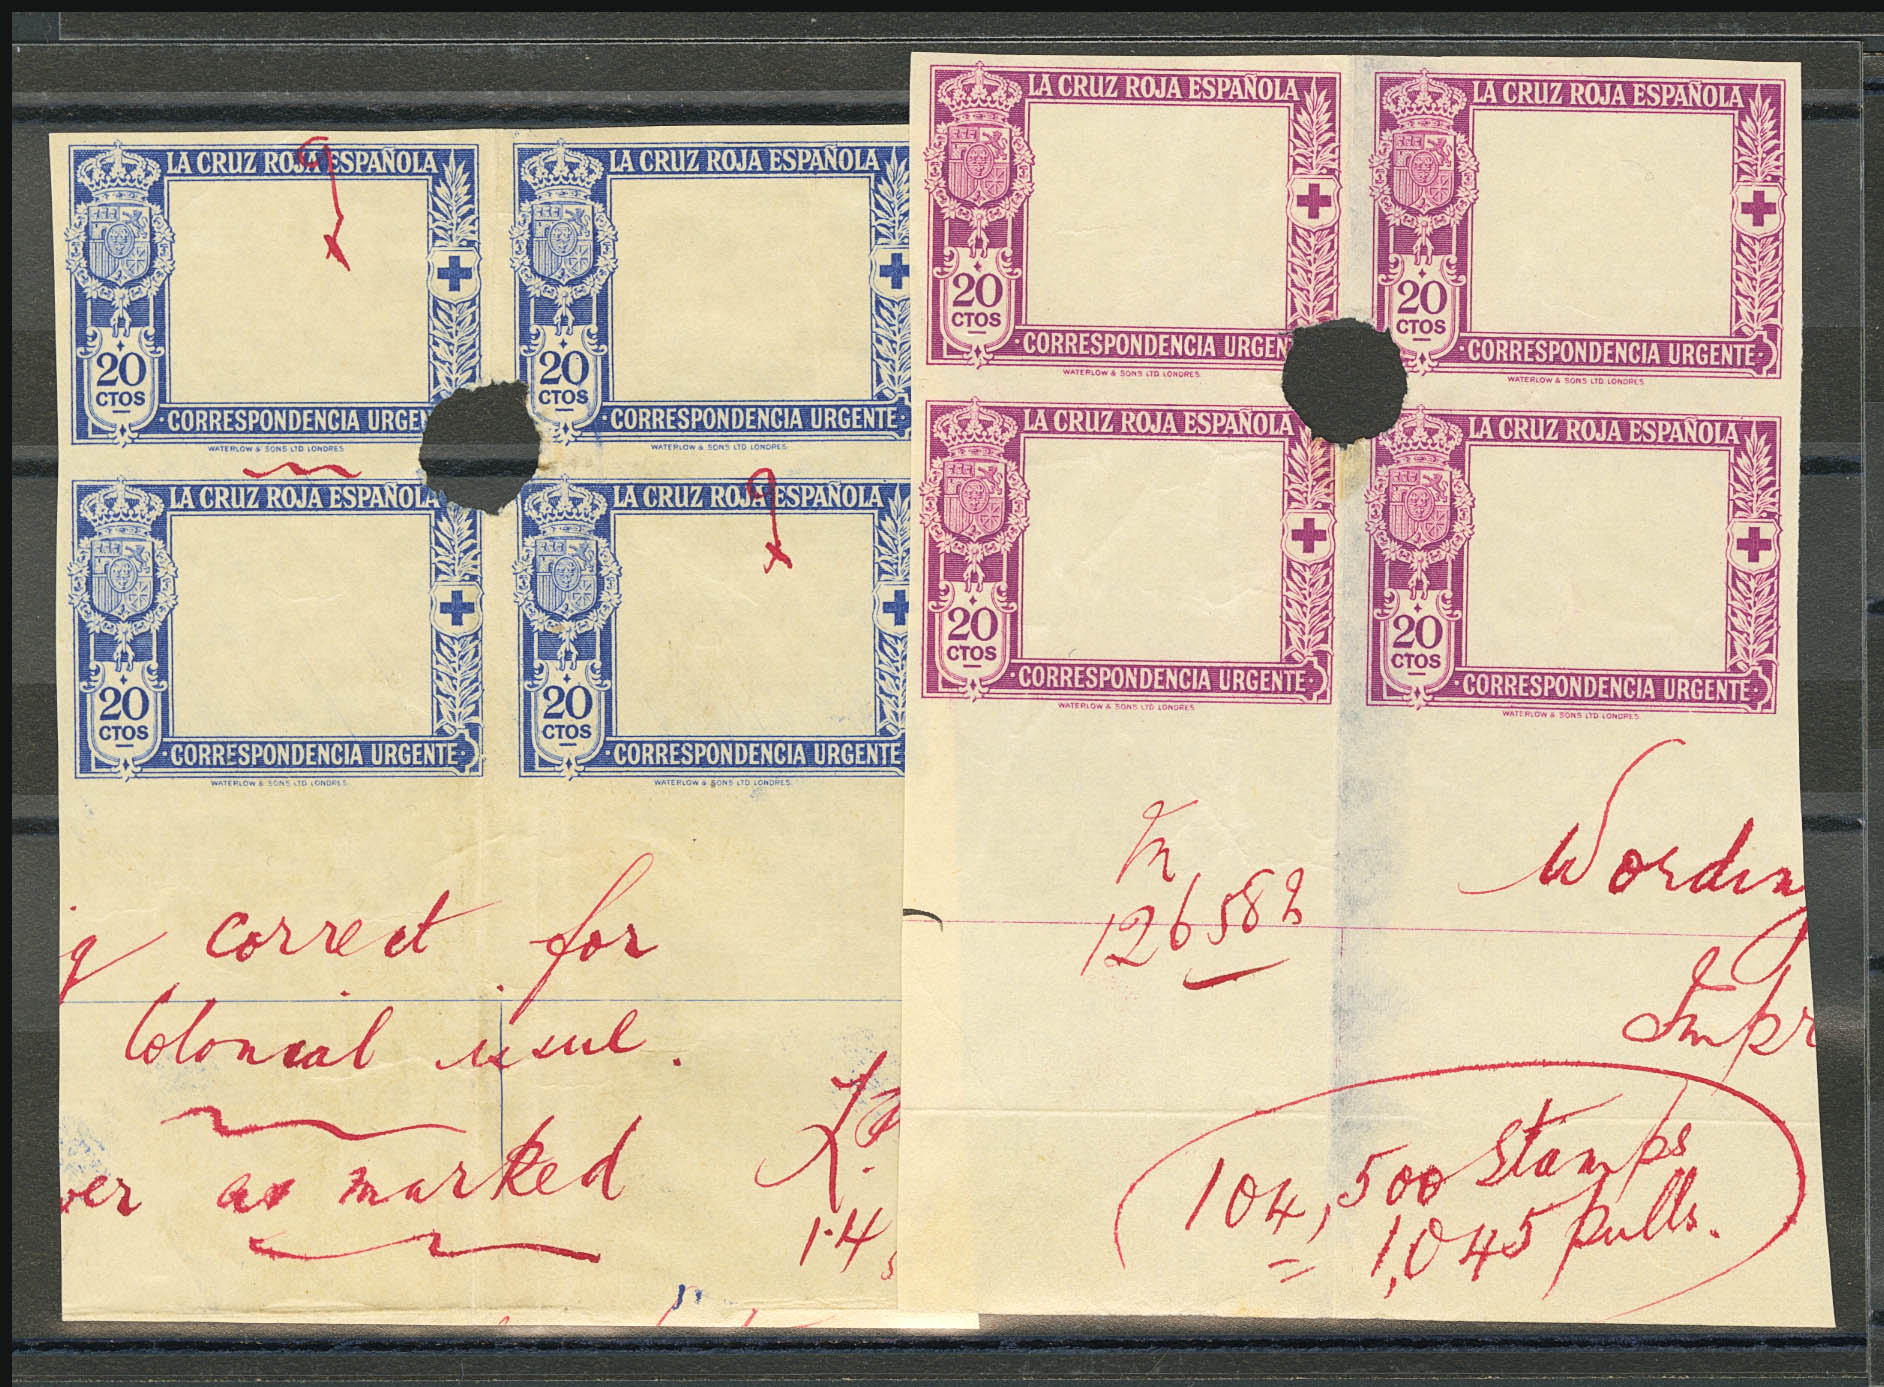 LA CRUZ ROJA ESPAÑOLA
20
CTOS
·CORRESPONDENCIA URGEN
WATERLOW & SONS LTD LONDRES.
LA CRUZ ROJA ESPAÑOLA
20
CTOS
·CORRESPONDENCIA URGENTE·
WATERLOW & SONS LTD LONDRES.
LA CRUZ ROJA ESPAÑOLA
20
CTOS
·CORRESPONDENCIA URGENTE·
WATERLOW & SONS LTD LONDRES.
LA CRUZ ROJA ESPAÑOLA
20
CTOS
·CORRESPONDENCIA URGENTE
WATERLOW & SONS LTD LONDRES.
g correct for
Colonial issue.
ver as marked
1·4
LA CRUZ ROJA ESPAÑOLA
20
CTOS
·CORRESPONDENCIA URGEN
WATERLOW & SONS LTD LONDRES.
LA CRUZ ROJA ESPAÑOLA
20
CTOS
·CORRESPONDENCIA URGENTE·
WATERLOW & SONS LTD LONDRES.
LA CRUZ ROJA ESPAÑOLA
20
CTOS
·CORRESPONDENCIA URGENTE·
WATERLOW & SONS LTD LONDRES.
LA CRUZ ROJA ESPAÑOLA
20
CTOS
·CORRESPONDENCIA URGENTE·
WATERLOW & SONS LTD LONDRES.
Wording
Impr
104,500 Stamps
1,045 pulls.